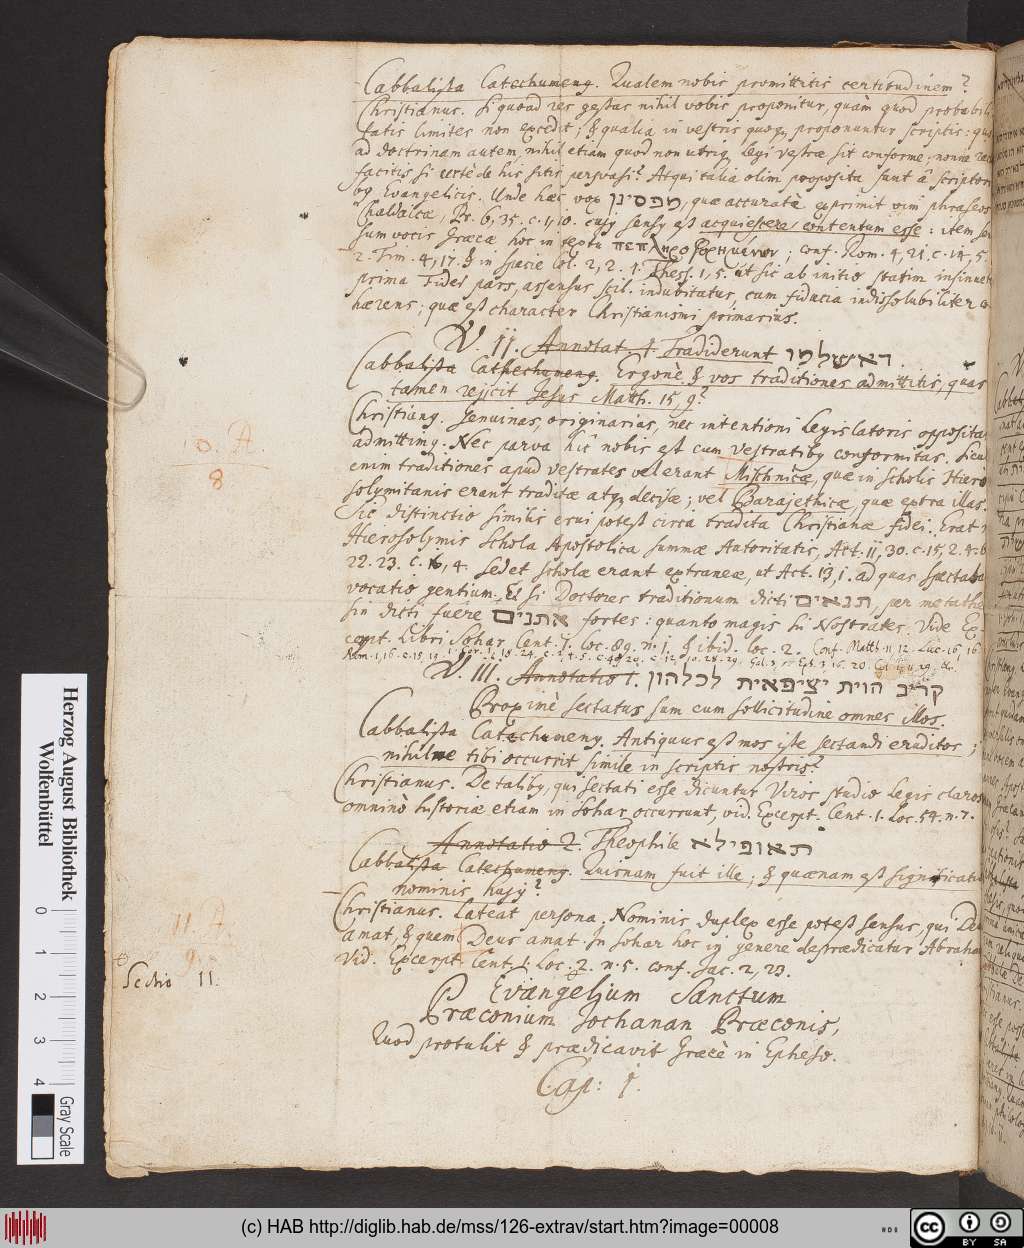 Cabbalista Catechumeng. Qualem nobis promittitis certitudinem?
Christianus. Si quoad res gestas nihil vobis proponitur, quàm quod probabili
tatis limites non excedit; & qualia in vestris quoq proponuntur scriptis: quo
ad doctrinam autem, nihil etiam quod non utriq legi vestræ sit conforme, nonne
facitis si certè de his sitis persvasi? Atqui talia olim proposita sunt â scriptori
bg Evangelicis. Unde hæc vox מפסינן, quæ accuratè exprimit vim phraseos
Chaldaicæ, Pr. 6, 35. c. 1, 10. cujg sensg est acquiescere, contentum esse: item sen
sum vocis Græcæ hoc in textu πεπληροφορημένων; conf. Rom. 4, 21. c. 14, 5.
2. Tim. 4, 17. & in specie Col. 2, 2. 1. Thess. 1, 5. ut sic ab initio statim insinuet
prima Fidei pars, assensus scil. indubitatus, cum fiducia indissolubiliter co
hærens; quæ est character Christianismi primarius.
V. II. Annotat. 1. Tradiderunt דאשלמו
Cabbalista Cathechumeng. Ergonè & vos traditiones admittitis, quas
tamen rejicit Jesus Matth. 15, 9?
Christiang. Genuinas, originarias, nec intentioni Legislatoris oppositas
admittimg. Nec parva hîc nobis est cum vestratibg conformitas. Sicut
enim traditiones apud vestrates vel erant Mischnicæ, quæ in scholis Hiero
solymitanis erant traditæ atq decisæ; vel Barajethicæ, quæ extra illas.
Sic distinctio similis erui potest circa tradita Christianæ fidei. Erat
Hierosolymis Schola Apostolica summæ Autoritatis, Act. 11, 30. c. 15, 2. 4. 6
22. 23. c. 16, 4. Sed et scholæ erant extraneæ, ut Act. 13, 1. ad quas spectabat
vocatio gentium. Et si Doctores traditionum dicti תנאים, per metathe
sin dicti fuere אתנים fortes: quanto magis hi Nostrates. Vide Ex
cerpt. Libri Sohar Cent. 1. Loc. 89. n. 1. & ibid. loc. 2. Conf. Matth. 11, 12. Luc. 16, 16.
V. III. Annotatio 1. קריב הוית יציפאית לכלהון
Propinè sectatus sum cum sollicitudine omnes illos.
Cabbalista Catechumeng. Antiquus est mos iste sectandi eruditos;
nihilne tibi occurrit simile in scriptis nostris?
Christianus. De talibg, qui sectati esse dicuntur Viros studio Legis claros
omninò historiæ etiam in Sohar occurrunt, vid. Excerpt. Cent. 1. Loc. 54. n. 7.
Annotatio 2. Theophile תאופילא
Cabbalista Catechumeng. Quisnam fuit ille; & quænam est significatio
nominis hujg?
Christianus. Lateat persona; Nominis duplex esse potest sensus, qui Deum
amat, & quem Deus amat. In Sohar hoc in genere deprædicatur Abraham
Vid. Excerpt. Cent. 1. Loc. 2. n. 5. conf. Jac. 2, 23.
Sectio II.
Evangelium Sanctum
Præconium Jochanan Præconis,
Quod protulit & prædicavit Græcè in Epheso.
Cap: 1.
10. A.
8
11. A
9
Herzog August Bibliothek
Wolfenbüttel
0 1 2 3 4
Gray Scale
(c) HAB http://diglib.hab.de/mss/126-extrav/start.htm?image=00008
cc BY SA